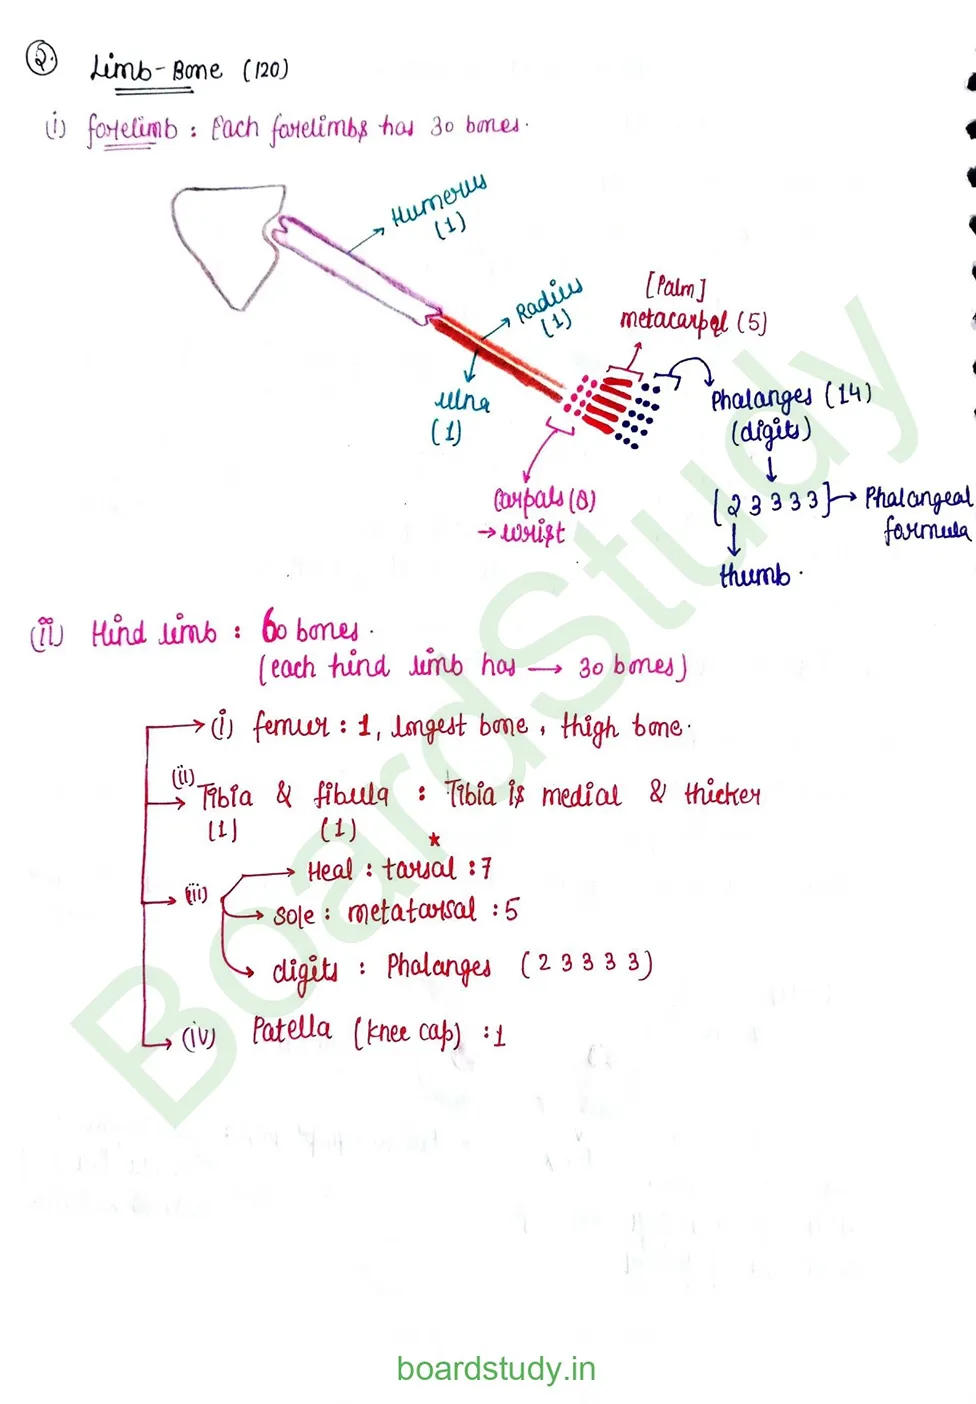 2. Limb-Bone (120)
(i) forelimb : Each forelimbs has 30 bones.
Humerus
(1)
Radius
(1)
[Palm]
metacarpal (5)
ulna
(1)
Phalanges (14)
(digits)
Carpals (8)
→ wrist
[2 3 3 3 3] → Phalangeal
formula
thumb.
(ii) Hind limb : 60 bones.
(each hind limb has → 30 bones)
(i) femur : 1, longest bone, thigh bone.
(ii) Tibia & fibula : Tibia is medial & thicker
(1) (1)
(iii) Heal : tarsal : 7
sole : metatarsal : 5
digits : Phalanges (2 3 3 3 3)
(iv) Patella (knee cap) : 1
BoardStudy
boardstudy.in